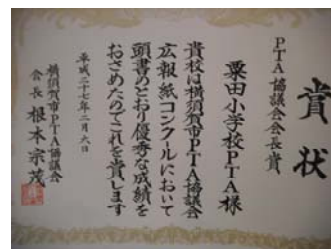 賞状
PTA協議会会長賞
粟田小学校PTA様
貴校は横須賀市PTA協議会
広報紙コンクールにおいて
頭書のとおり優秀な成績を
おさめたのでこれを賞します
平成二十七年二月六日
横須賀市PTA協議会
会長 根本宗茂